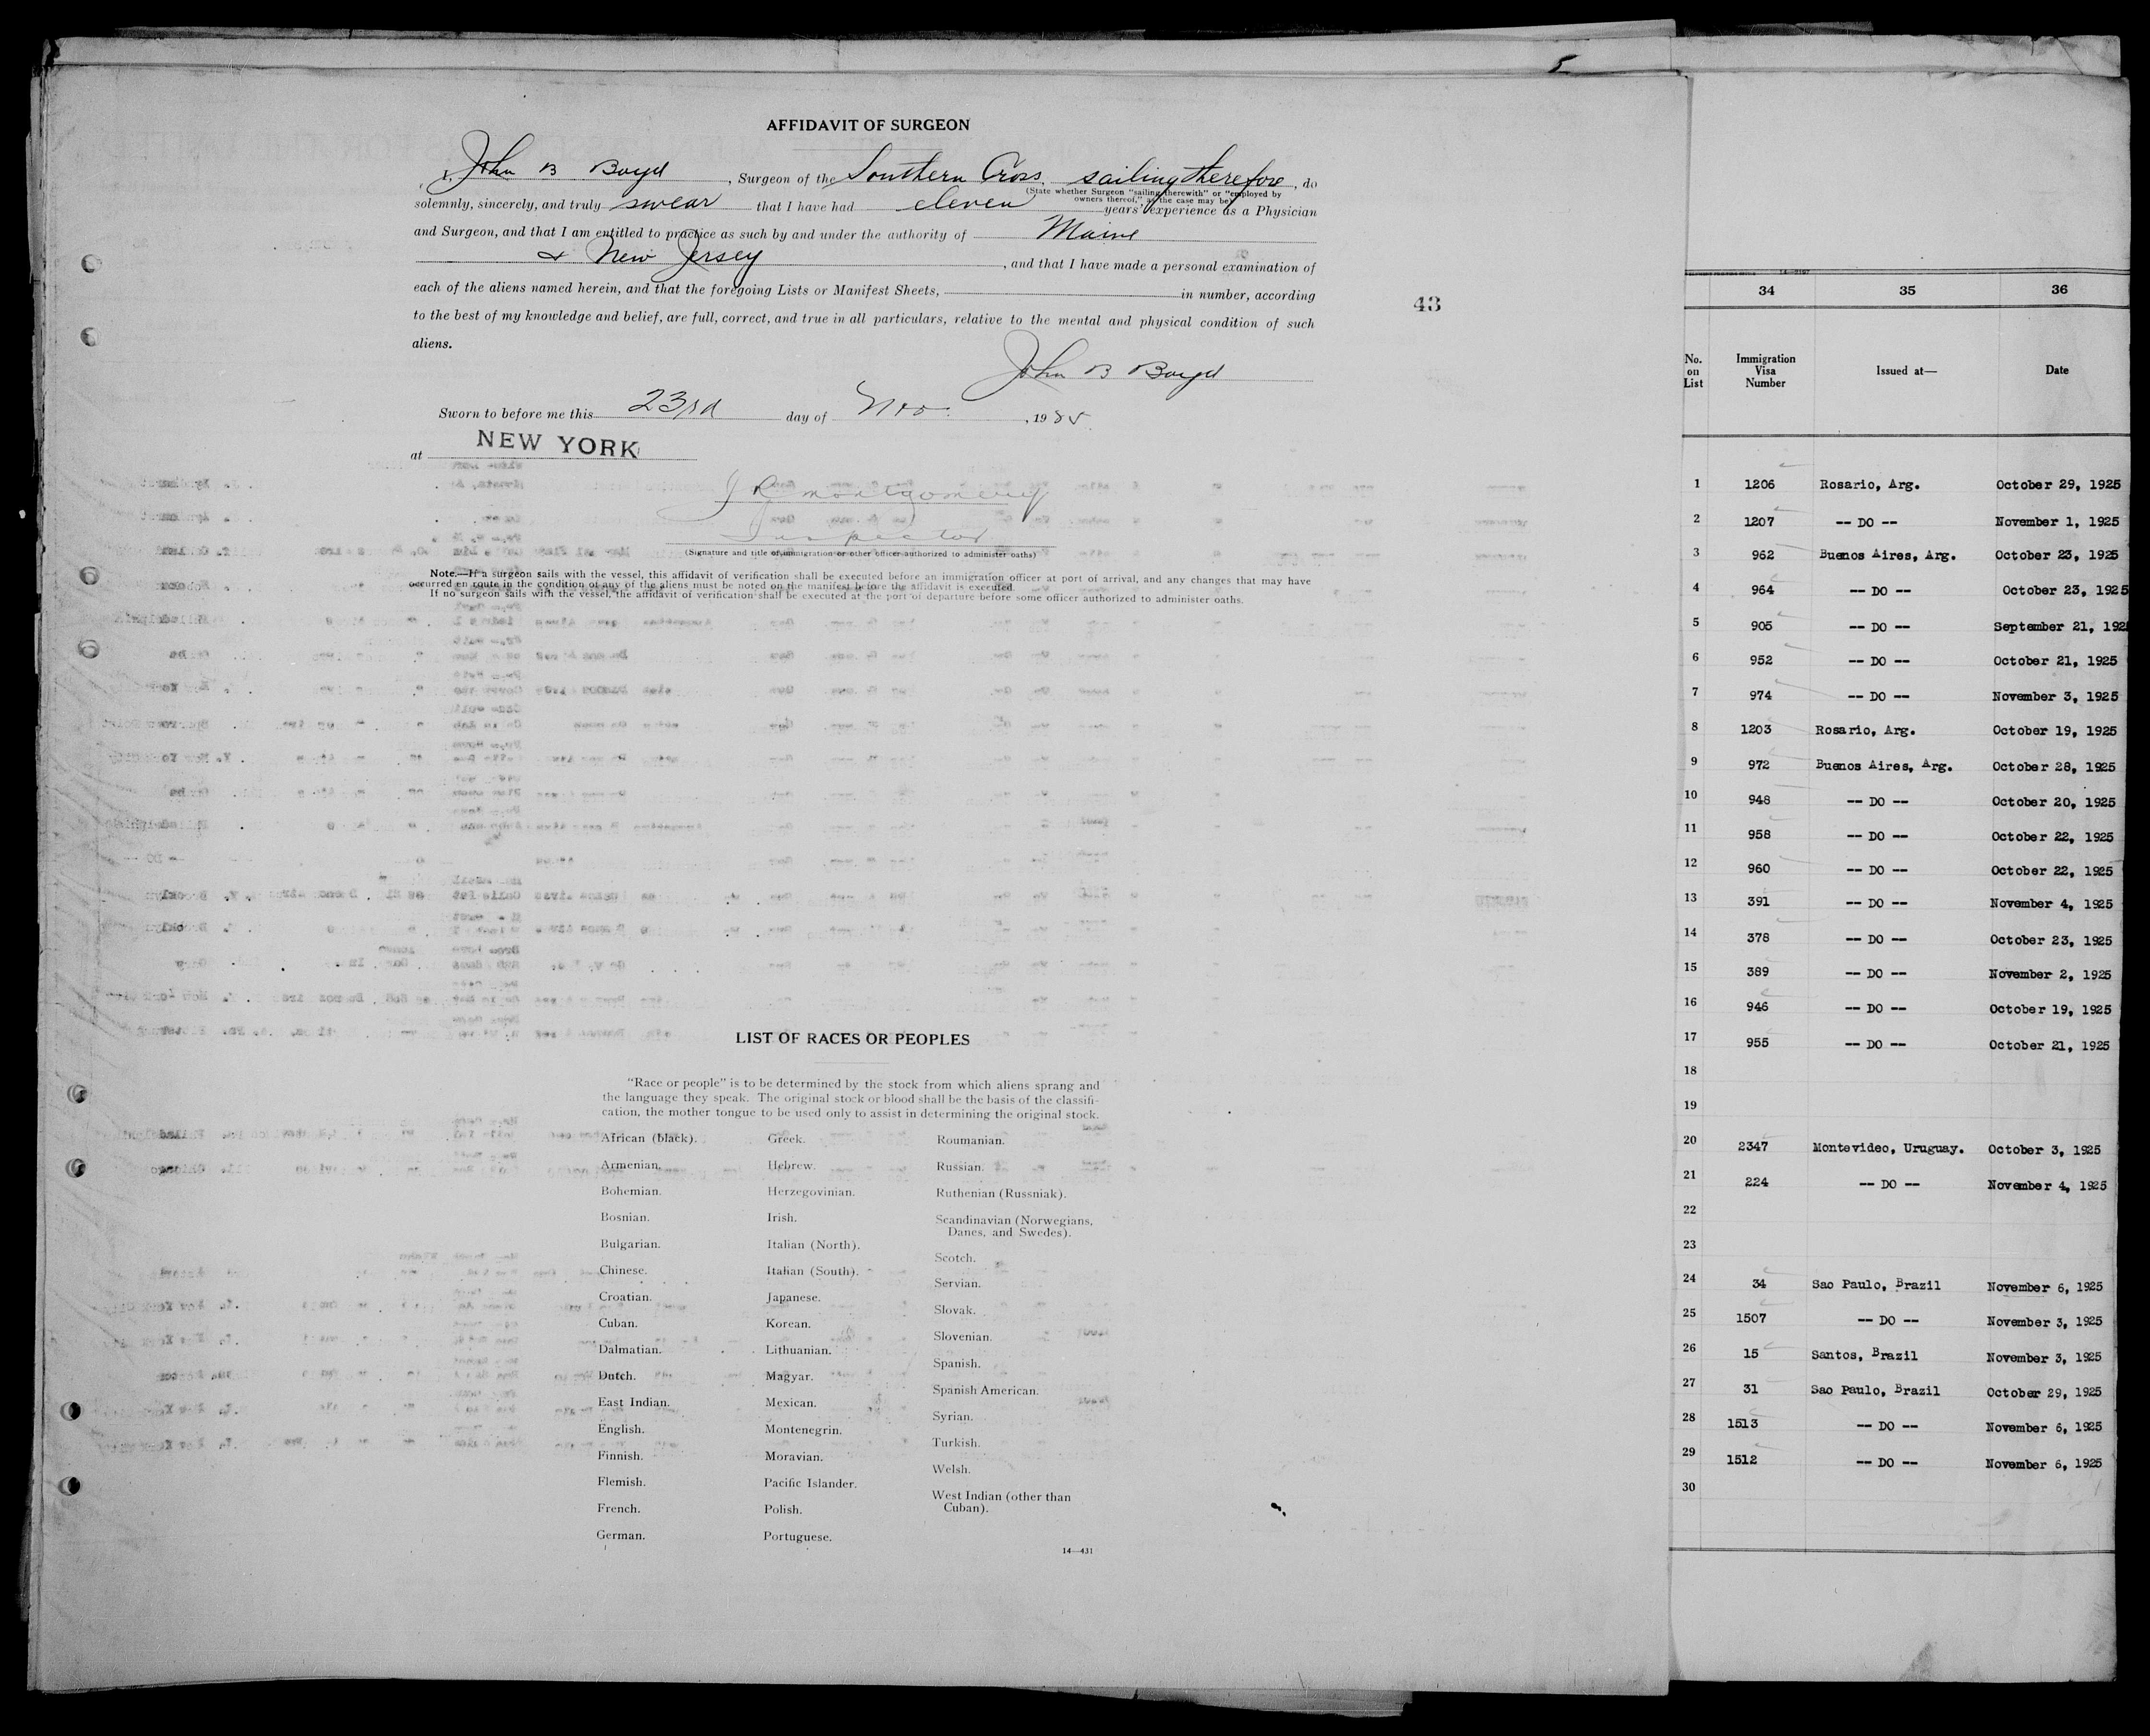 5
AFFIDAVIT OF SURGEON
I, John B Boyd, Surgeon of the Southern Cross, sailing therefore, do
(State whether Surgeon "sailing therewith" or "employed by
owners thereof," as the case may be)
solemnly, sincerely, and truly swear that I have had eleven years' experience as a Physician
and Surgeon, and that I am entitled to practice as such by and under the authority of Maine
& New Jersey, and that I have made a personal examination of
each of the aliens named herein, and that the foregoing Lists or Manifest Sheets, in number, according
to the best of my knowledge and belief, are full, correct, and true in all particulars, relative to the mental and physical condition of such
aliens.
43
John B Boyd
Sworn to before me this 23rd day of Nov., 1925.
at NEW YORK
J R Montgomery
Inspector
(Signature and title of immigration or other officer authorized to administer oaths)
Note.—If a surgeon sails with the vessel, this affidavit of verification shall be executed before an immigration officer at port of arrival, and any changes that may have
occurred en route in the condition of any of the aliens must be noted on the manifest before the affidavit is executed.
If no surgeon sails with the vessel, the affidavit of verification shall be executed at the port of departure before some officer authorized to administer oaths.
LIST OF RACES OR PEOPLES
"Race or people" is to be determined by the stock from which aliens sprang and
the language they speak. The original stock or blood shall be the basis of the classifi-
cation, the mother tongue to be used only to assist in determining the original stock.
African (black).
Armenian.
Bohemian.
Bosnian.
Bulgarian.
Chinese.
Croatian.
Cuban.
Dalmatian.
Dutch.
East Indian.
English.
Finnish.
Flemish.
French.
German.
Greek.
Hebrew.
Herzegovinian.
Irish.
Italian (North).
Italian (South).
Japanese.
Korean.
Lithuanian.
Magyar.
Mexican.
Montenegrin.
Moravian.
Pacific Islander.
Polish.
Portuguese.
Roumanian.
Russian.
Ruthenian (Russniak).
Scandinavian (Norwegians,
Danes, and Swedes).
Scotch.
Servian.
Slovak.
Slovenian.
Spanish.
Spanish American.
Syrian.
Turkish.
Welsh.
West Indian (other than
Cuban).
14—431
34 35 36
No. on List Immigration Visa Number Issued at— Date
1 1206 Rosario, Arg. October 29, 1925
2 1207 -- DO -- November 1, 1925
3 962 Buenos Aires, Arg. October 23, 1925
4 964 -- DO -- October 23, 1925
5 905 -- DO -- September 21, 192
6 952 -- DO -- October 21, 1925
7 974 -- DO -- November 3, 1925
8 1203 Rosario, Arg. October 19, 1925
9 972 Buenos Aires, Arg. October 28, 1925
10 948 -- DO -- October 20, 1925
11 958 -- DO -- October 22, 1925
12 960 -- DO -- October 22, 1925
13 391 -- DO -- November 4, 1925
14 378 -- DO -- October 23, 1925
15 389 -- DO -- November 2, 1925
16 946 -- DO -- October 19, 1925
17 955 -- DO -- October 21, 1925
18
19
20 2347 Montevideo, Uruguay. October 3, 1925
21 224 -- DO -- November 4, 1925
22
23
24 34 Sao Paulo, Brazil November 6, 1925
25 1507 -- DO -- November 3, 1925
26 15 Santos, Brazil November 3, 1925
27 31 Sao Paulo, Brazil October 29, 1925
28 1513 -- DO -- November 6, 1925
29 1512 -- DO -- November 6, 1925
30